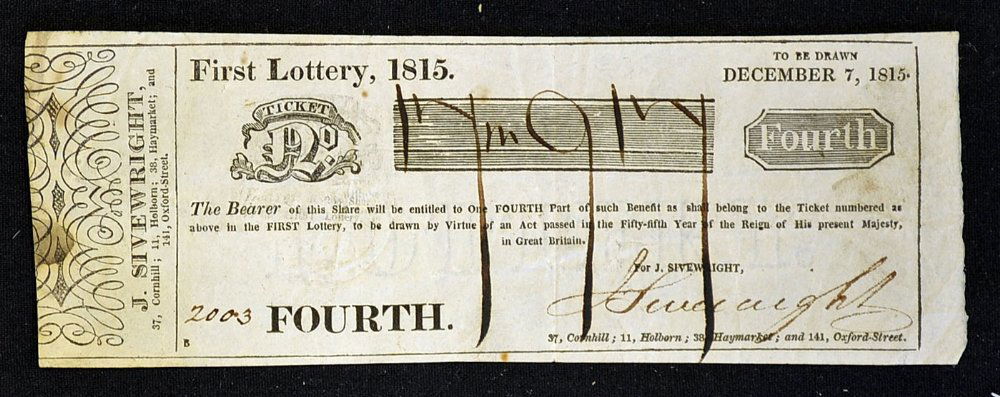 J. SIVEWRIGHT,
37, Cornhill; 11, Holborn; 38, Haymarket; and
141, Oxford-Street.
First Lottery, 1815.
TO BE DRAWN
DECEMBER 7, 1815.
TICKET
No.
Fourth
The Bearer of this Share will be entitled to One FOURTH Part of such Benefit as shall belong to the Ticket numbered as
above in the FIRST Lottery, to be drawn by Virtue of an Act passed in the Fifty-fifth Year of the Reign of His present Majesty,
in Great Britain.
For J. SIVEWRIGHT,
J Sivewright
2003
FOURTH.
37, Cornhill; 11, Holborn; 38, Haymarket; and 141, Oxford-Street.